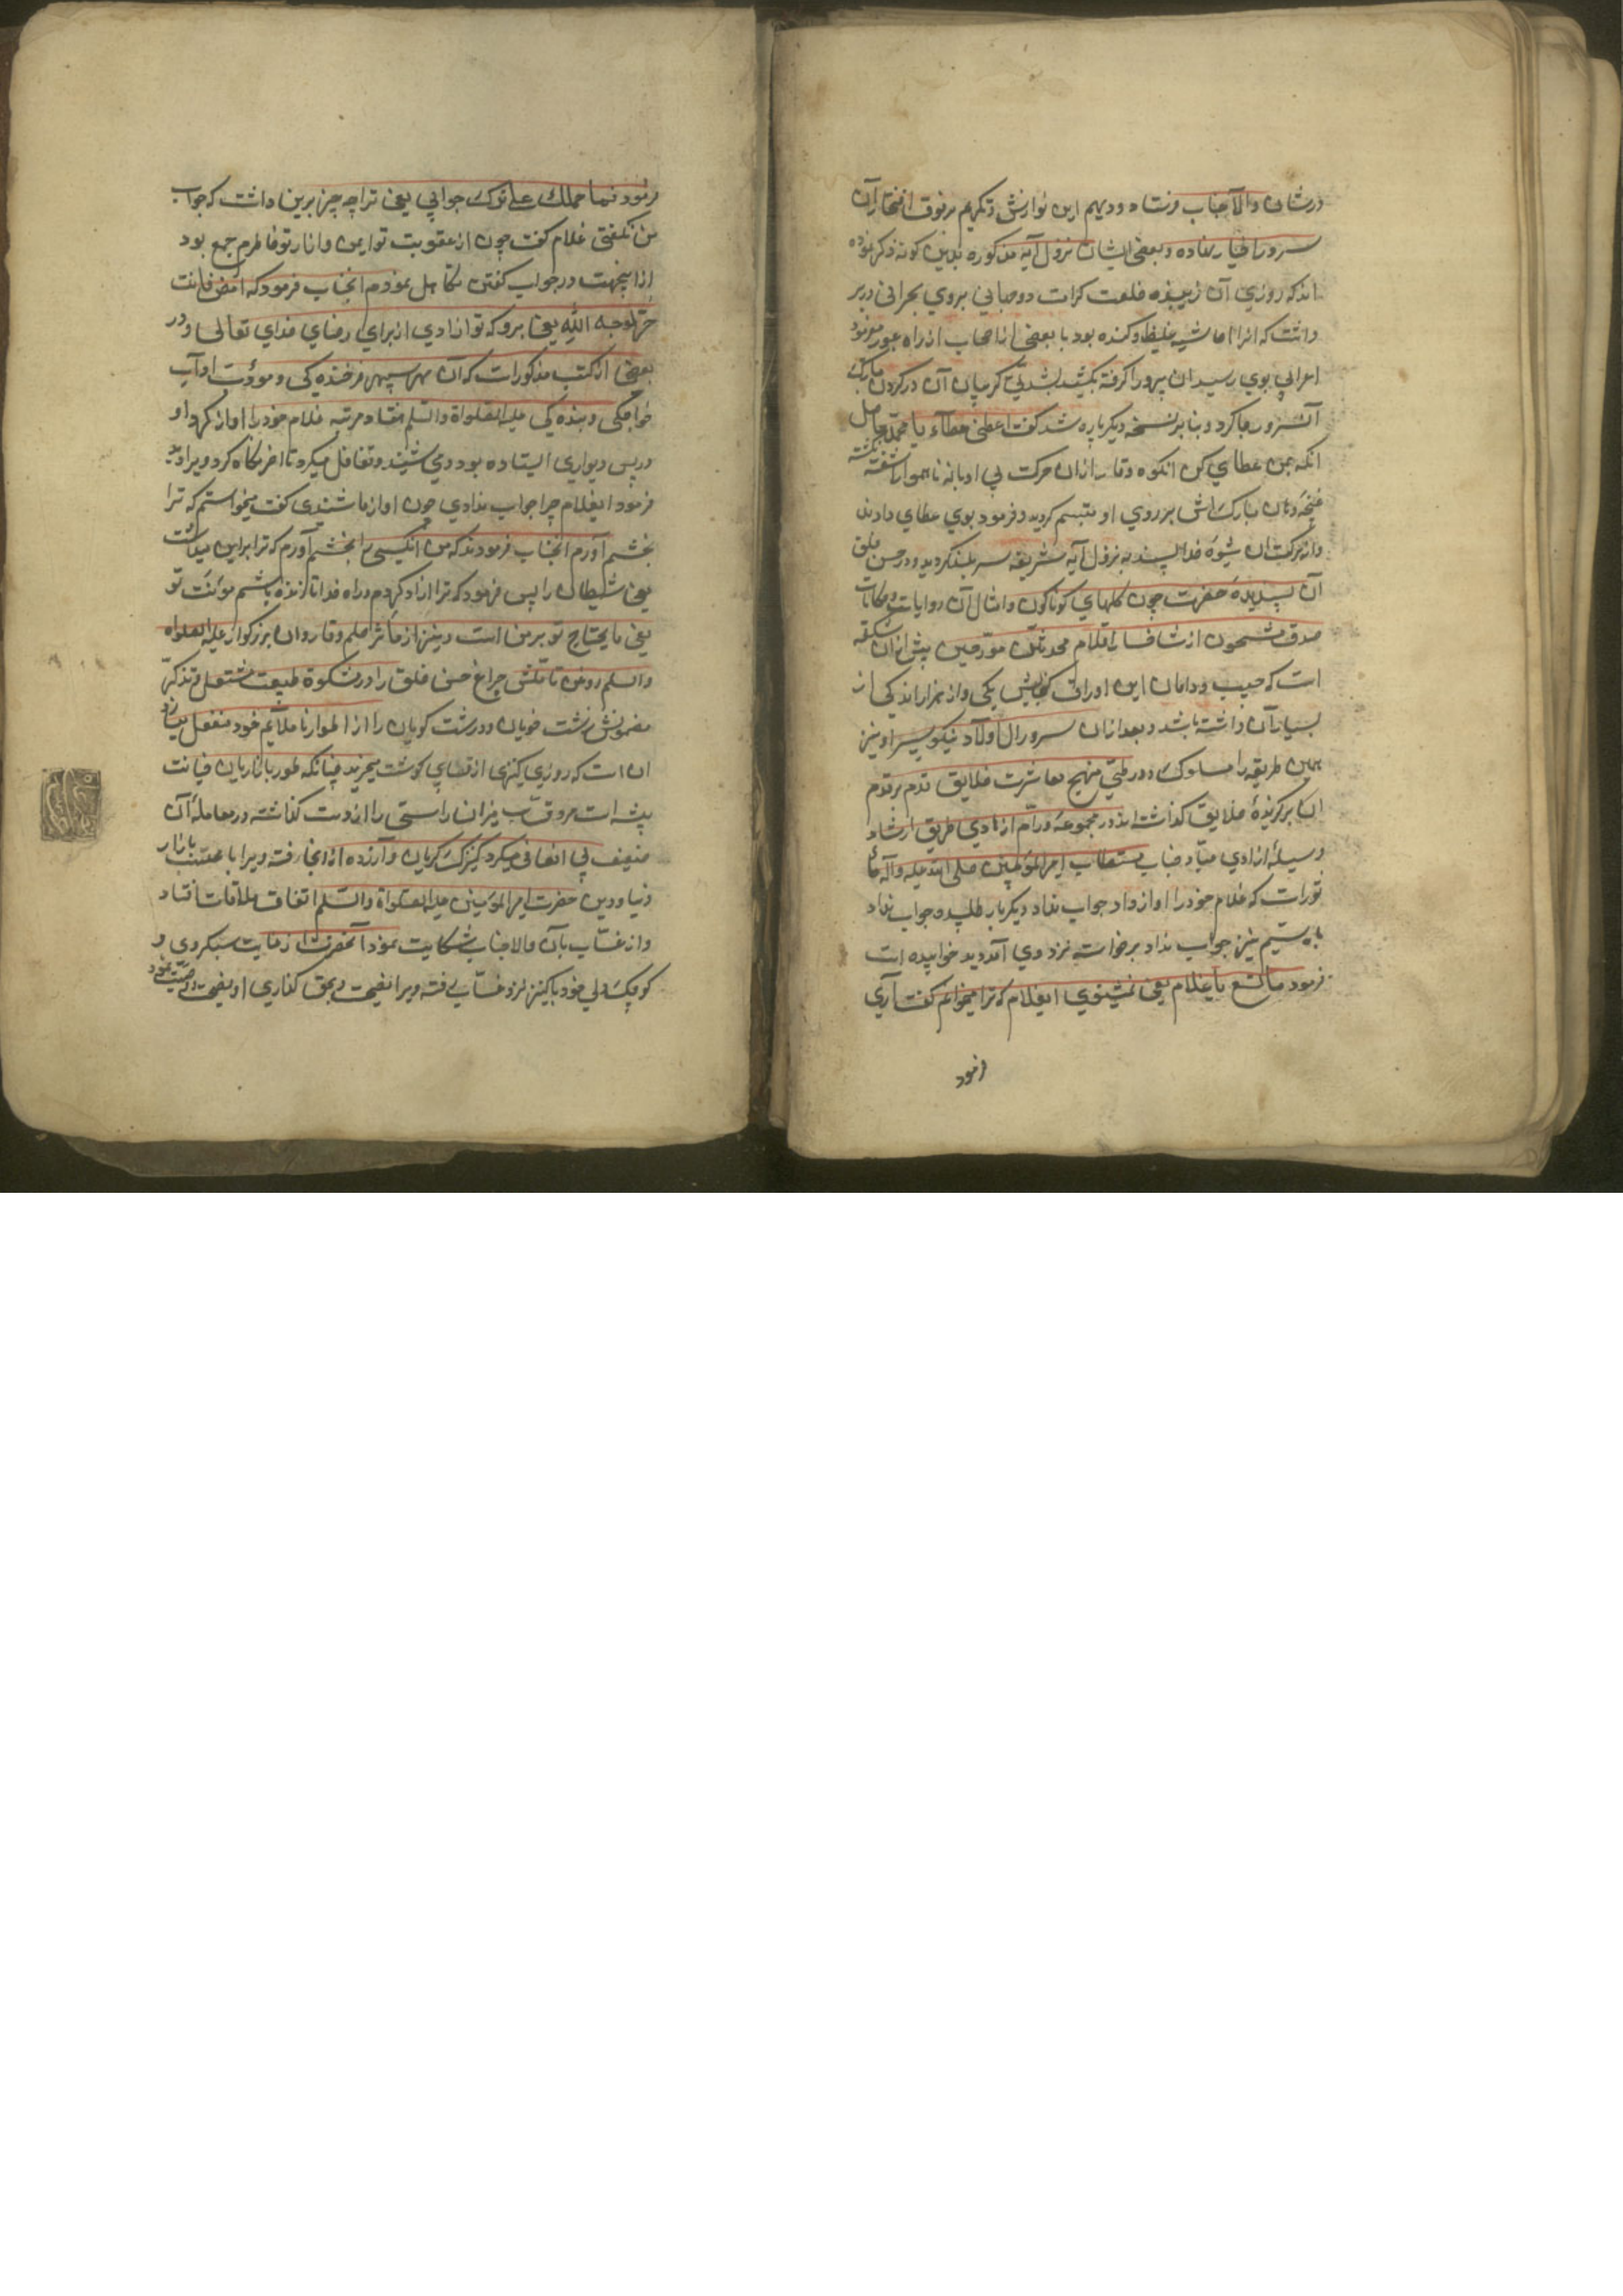 درشان والاجناب فرستاد و دیهیم این نوازش و تکریم بر فوق افتخار آن
سرور اخیار نهاده و بعضی ایشان نزول آیه مذکوره بدین گونه ذکر نموده
اند که روزی آن زیبنده خلعت کرامت دو جهانی بروی بحرانی در بر
داشت که آنرا حاشیه غلیظ و کنده بود با بعضی از اصحاب از راه عبور مینمود
اعرابی بوی رسید ان را گرفته بکشید بشدتی که گریبان آن در گردن مبارک
آن سرور جا کرد و بنا بر نسخه دیگر پاره شد گفت اعطنی عطاء یا محمد حاصل
انکه بمن عطای کن انکوه وقار ازان حرکت بی ادبانه ناهموار اشفته نگشته
غنچه دهان مبارک اش بر روی او متبسم گردید و فرمود بوی عطای دادند
و از برکت ان شیوه خدا پسند به نزول آیه شریفه سر بلند گردید و در حسن خلق
آن پسندیده حضرت چون گلهای گوناگون و امثال آن روایات و حکایات
صدق مشحون از شاخسار اقلام محدثان مؤرخین پیش ازان شکفته
است که جیب و دامان این اوراق گنجایش یکی و از هزار اندکی از
بسیار آن داشته باشد و بعد ازان سرور ال و اولاد نیکو سیر او نیز
همین طریقه را مسلوک و در طی منهج معاشرت خلایق قدم بر قدم
ان برگزیدۀ خلایق گذاشته اند در مجموعه ورام از هادی طریق ارشاد
وسیلۀ ازادی عباد جناب مستطاب امیر المؤمنین صلی الله علیه و آله مأ
ثورات که غلام خود را اواز داد جواب نداد دیگر بار طلبید جواب نداد
بار سیم نیز جواب نداد برخواسته نزد وی آمد دید خوابیده است
فرمود ما تسمع یا غلام یعنی نمیشنوی ایغلام که ترا میخوانم گفت آری
فرمود
فرمود فما حملک علی ترک جوابی یعنی ترا چه چیز برین داشت که جواب
من نگفتی غلام گفت چون از عقوبت تو ایمن و از تو خاطرم جمع بود
ازا ینجهت در جواب گفتن تکاهل نمودم انجناب فرمود که امض فانت
حر لوجه الله یعنی برو که تو ازادی از برای رضای خدای تعالی و در
بعضی از کتب مذکورات که آن مهر سپهر فرخنده کی و مودت اداب
خواجکی و بنده کی علیه الصلواة والسلم هفتاد مرتبه غلام خود را اواز کرد و او
در پس دیواری ایستاده بود و می شنید و تغافل میکرد تا اخر نگاه کرد ویرا دید
فرمود ایغلام چرا جواب ندادی چون اواز ما شنیدی گفت میخواستم که ترا
بخشم آورم انجناب فرمودند که من انکسی را بخشم آورم که ترا براین میداشت
یعنی شیطان را پس فرمود که ترا ازاد کردم در راه خدا تا زنده باشم مؤنت تو
یعنی مایحتاج تو بر من است و نیز از مآثر حلم و وقار وان بزرگوار علیه الصلواه
والسلم روغن چراغ حسن خلق را در مشکوة طبیعت مشتعل و تذکر
مضمونش زشت خویان و درشت گویان را از اطوار ناملایم خود منفعل میسازد
ان است که روزی کنیزی از قصابی گوشت میخرید چنانکه طور بازاریان خیانت
پیشه است قصاب میزان راستی را از دست گذاشته در معامله آن
ضعیف بی انصافی میکرد کنیزک گریان و آزرده از انجا رفته ویرا با محتسب بازار
دنیا و دین حضرت امیر المؤمنین علیه الصلواة والسلم اتفاق ملاقات افتاد
و از قصاب بآن والاجناب شکایت نمود آنحضرت از غایت سبکروی و
کوچک دلی خود با کنیز نزد قصاب رفته ویرا نصیحت و بحق گذاری او وصیت نمود